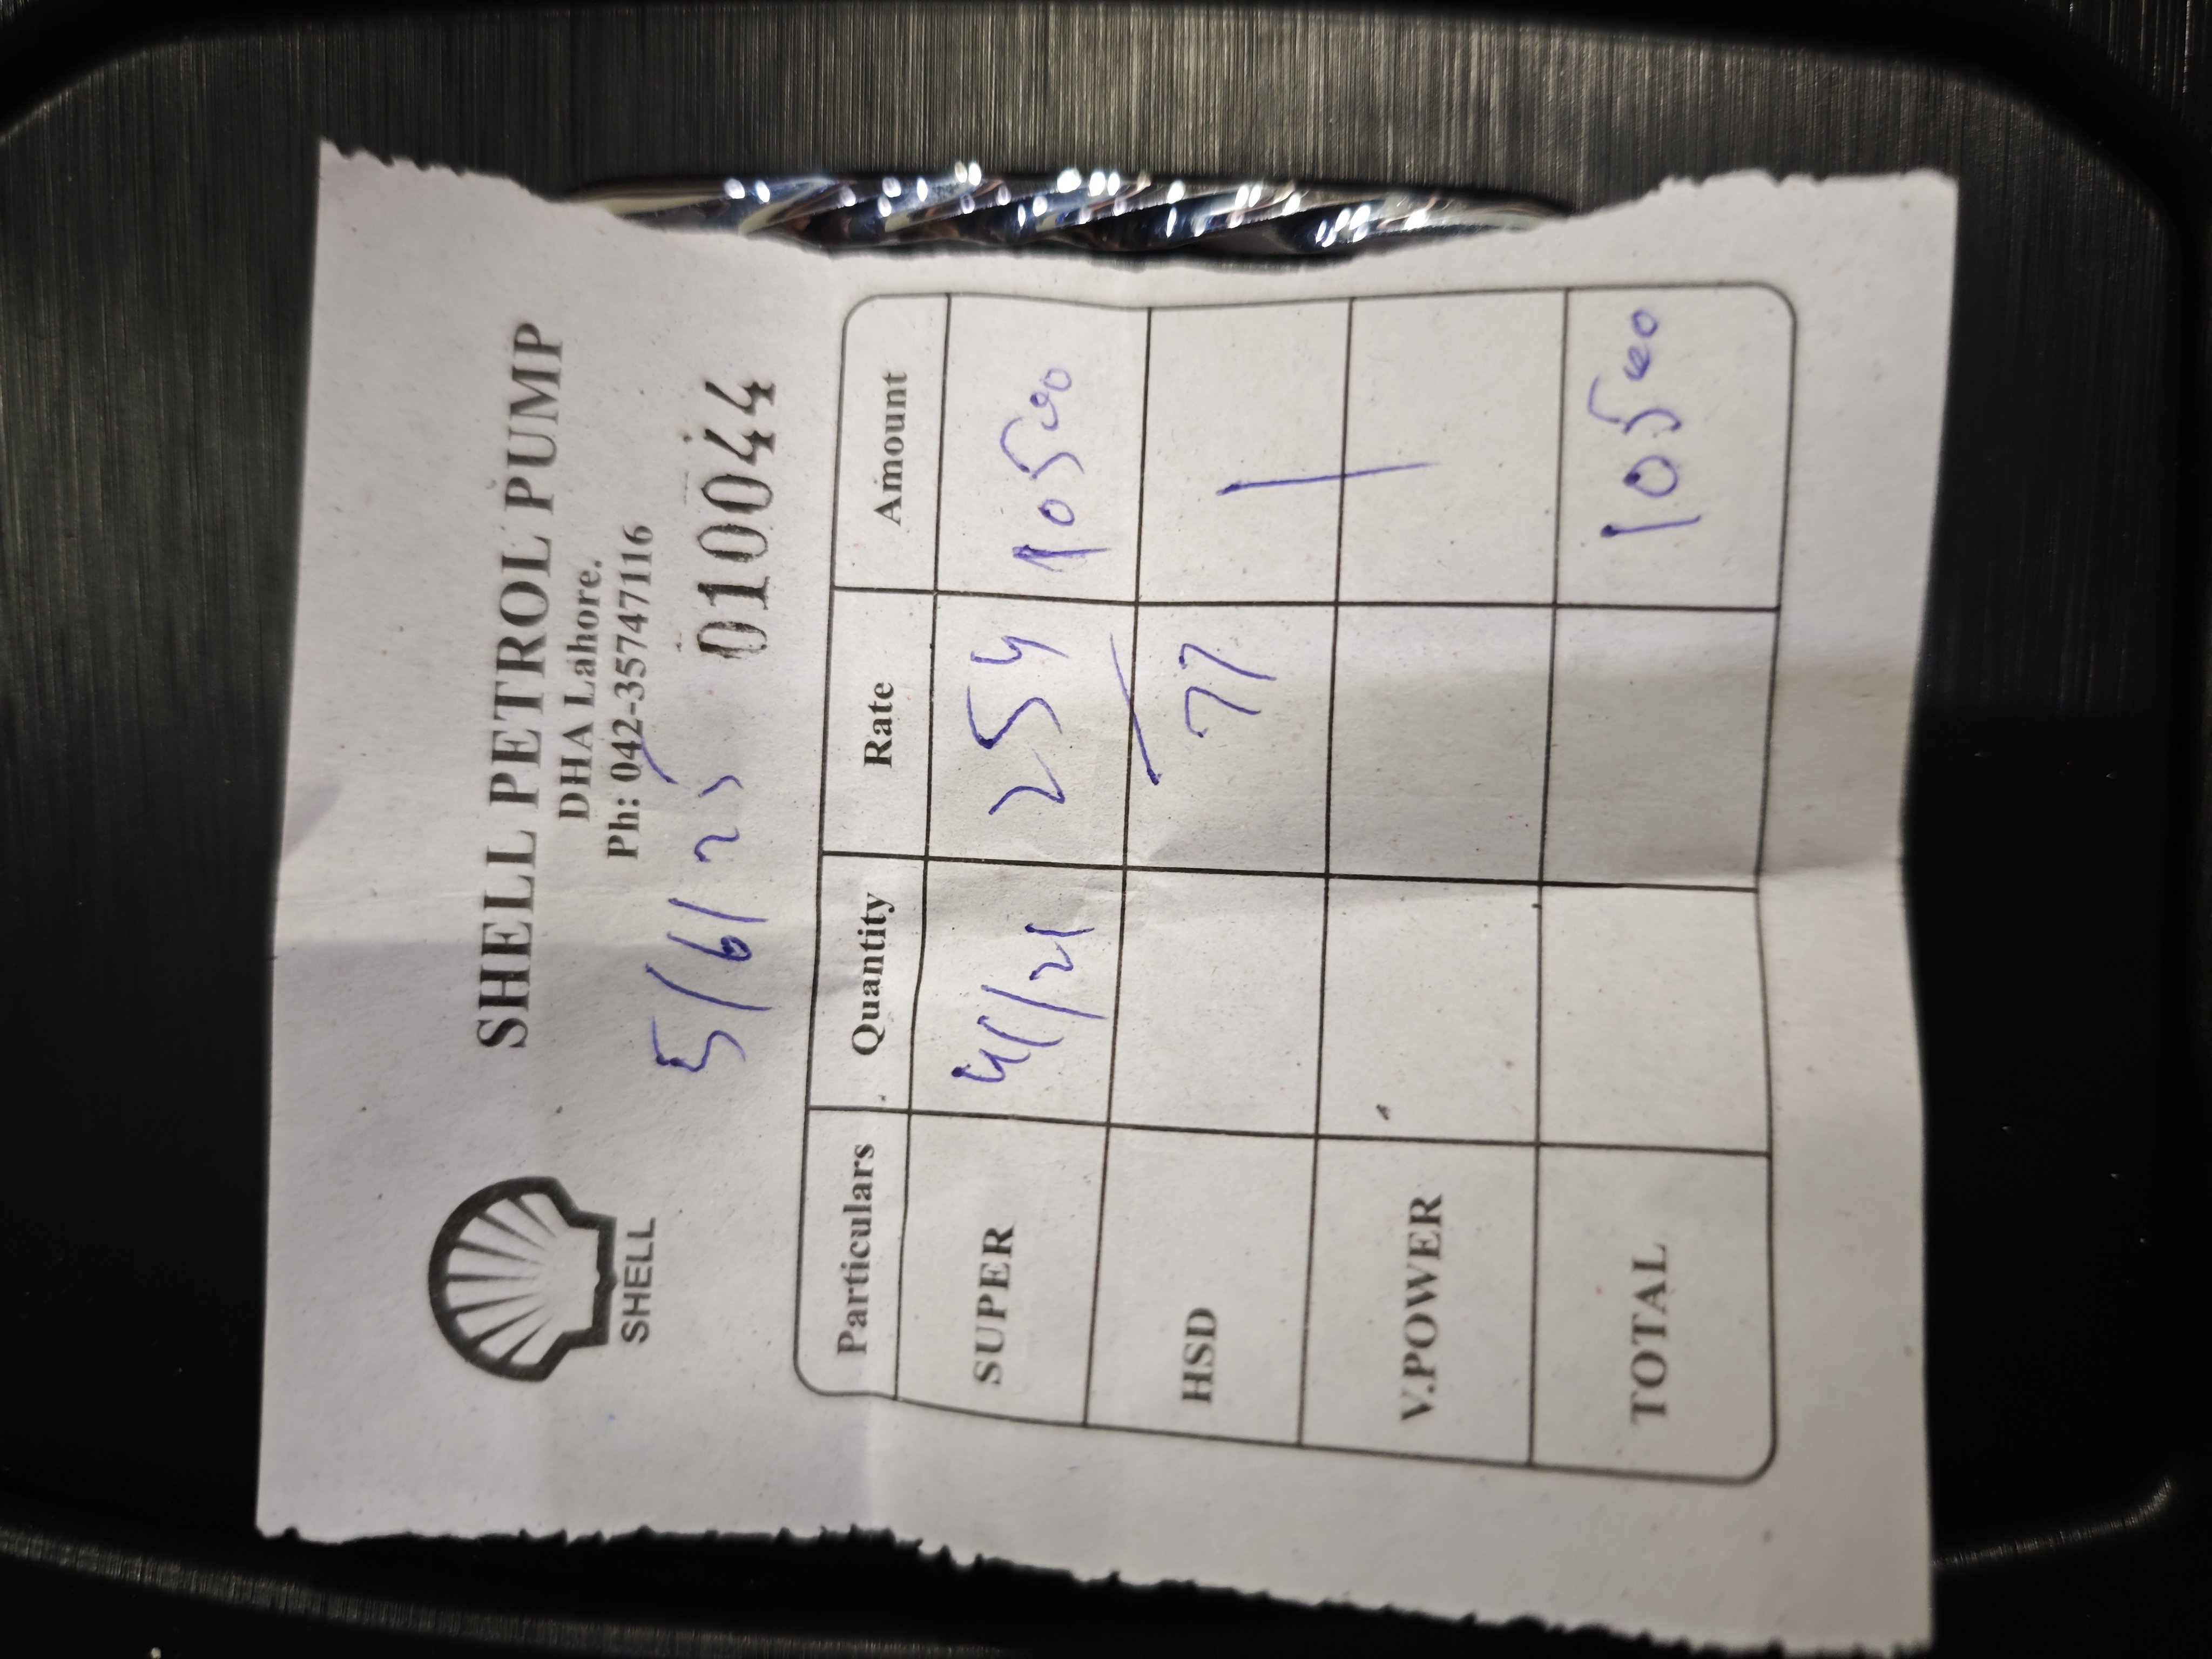 SHELL PETROL PUMP
DHA Lahore.
Ph: 042-35747116
SHELL
5/6/25 010044
Particulars Quantity Rate Amount
SUPER 41/21 254 10500
HSD 77
V.POWER
TOTAL 10500